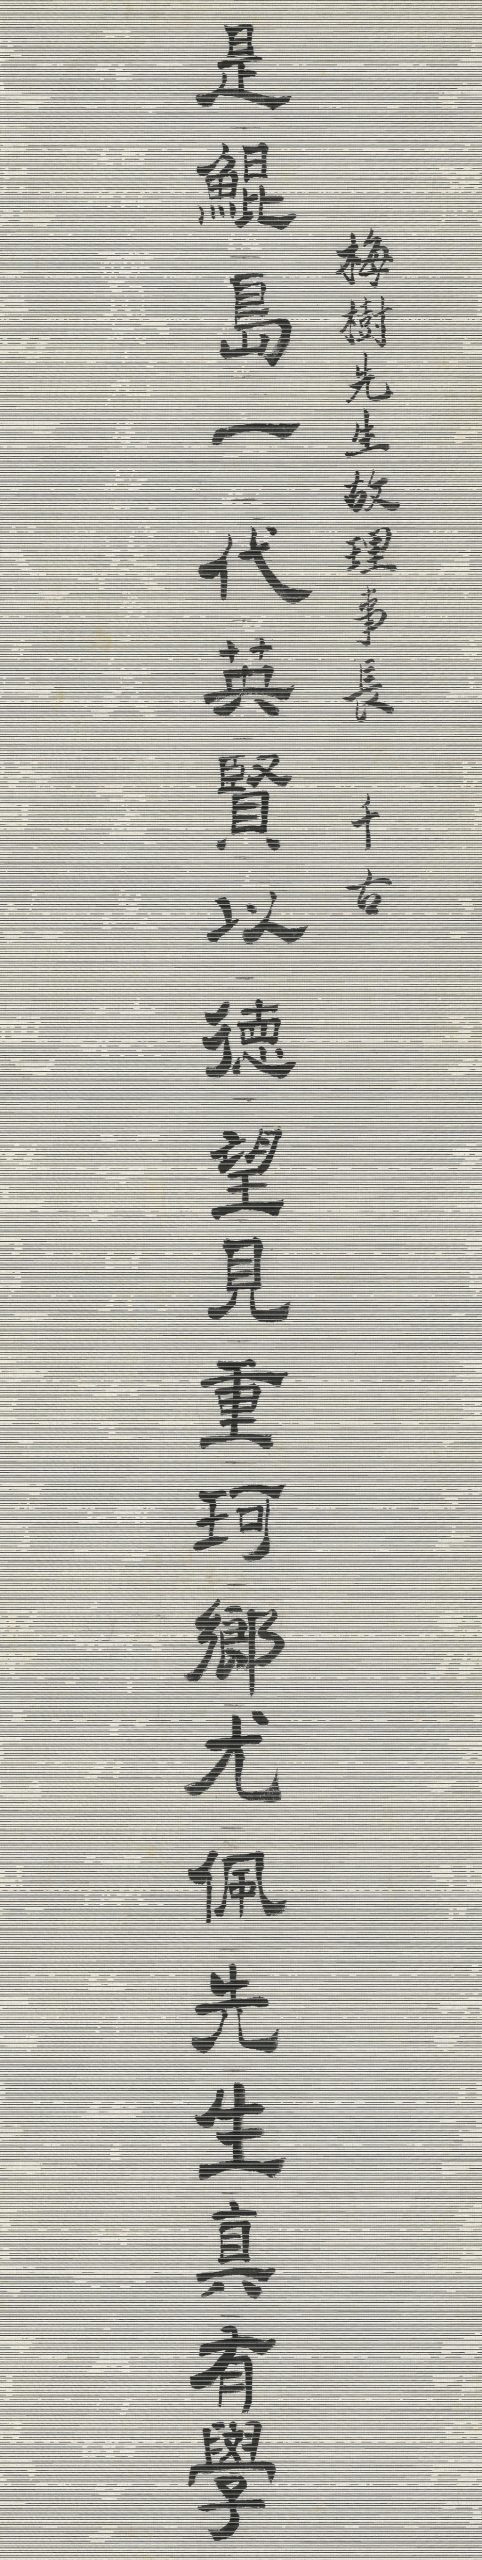 梅樹先生故理事長 千古
是鯤島一代英賢以德望見重珂鄉尤佩先生真有學